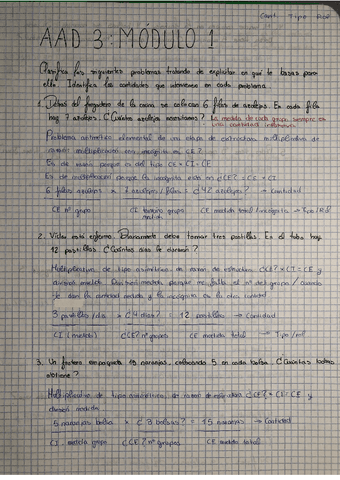 Cant. Tipo Rel
AAD 3: MÓDULO 1
Clasifica los siguientes problemas tratando de explicitar en qué te basas para
ello. Identifica las cantidades que intervienen en cada problema.
1. Detrás del fregadero de la cocina se colocan 6 filas de azulejos. En cada fila
hay 7 azulejos. ¿Cuántos azulejos necesitamos? La medida de cada grupo siempre es
una cantidad intensiva
Problema aritmético elemental de una etapa de estructura multiplicativa de
razón multiplicación con incógnita en CE?
Es de razón porque es del tipo CE × CI = CE
Es de multiplicación porque la incógnita está en ¿CE? = CE × CI
6 filas azulejos × 7 azulejos / filas = ¿42 azulejos? → Cantidad
CE nº grupo CI tamaño grupo CE medida total / incógnita → Tipo / Rel
medida
2. Vidal está enfermo. Diariamente debe tomar tres pastillas. En el tubo hay
12 pastillas. ¿Cuántos días le durarán?
Multiplicativo de tipo asimétrico de razón de estructura ¿CE? × CI = CE y
división medida. porque me falta el nº del grupo / cuando
te dan la cantidad medida y la incógnita es la otra cantidad
3 pastillas / día × ¿4 días? = 12 pastillas → Cantidad
CI (medida) ¿CE? nº grupos CE medida total → Tipo / rel
3. Un frutero empaqueta 15 naranjas, colocando 5 en cada bolsa. ¿Cuántas bolsas
obtiene?
Multiplicativo de tipo asimétrico de razón de estructura ¿CE? × CI = CE y
división medida
5 naranjas bolsa × ¿3 bolsas? = 15 naranjas → Cantidad
CI medida grupo ¿CE? nº grupos CE medida total